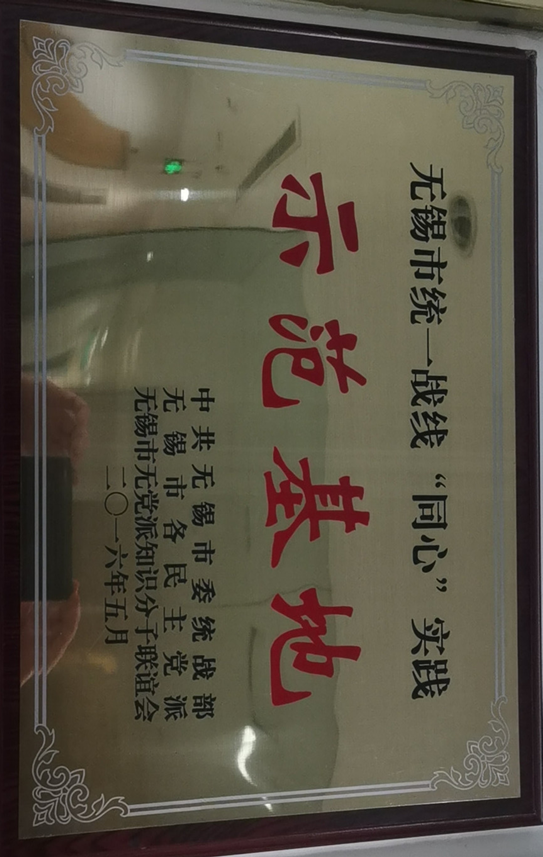 无锡市统一战线“同心”实践
示范基地
中共无锡市委统战部
无锡市各民主党派
无锡市无党派知识分子联谊会
二〇一六年五月